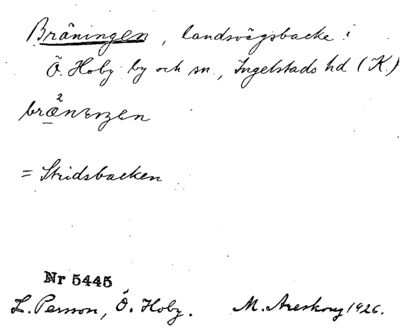 Bräningen, landsvägsbacke i
Ö. Hoby by och sn., Ingelstads hd (K.)
= Stridsbacken
Nr 5445
L. Persson, Ö. Hoby. M. Areskog 1926.